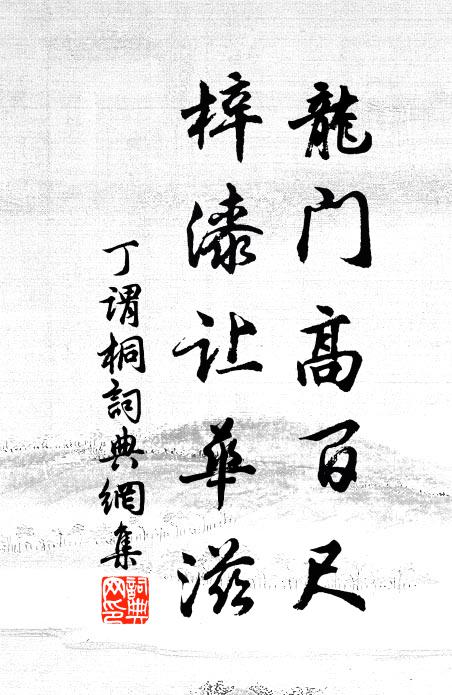 龍门高百尺
梓漆让華滋
丁谓桐詞典網集
詞典网印